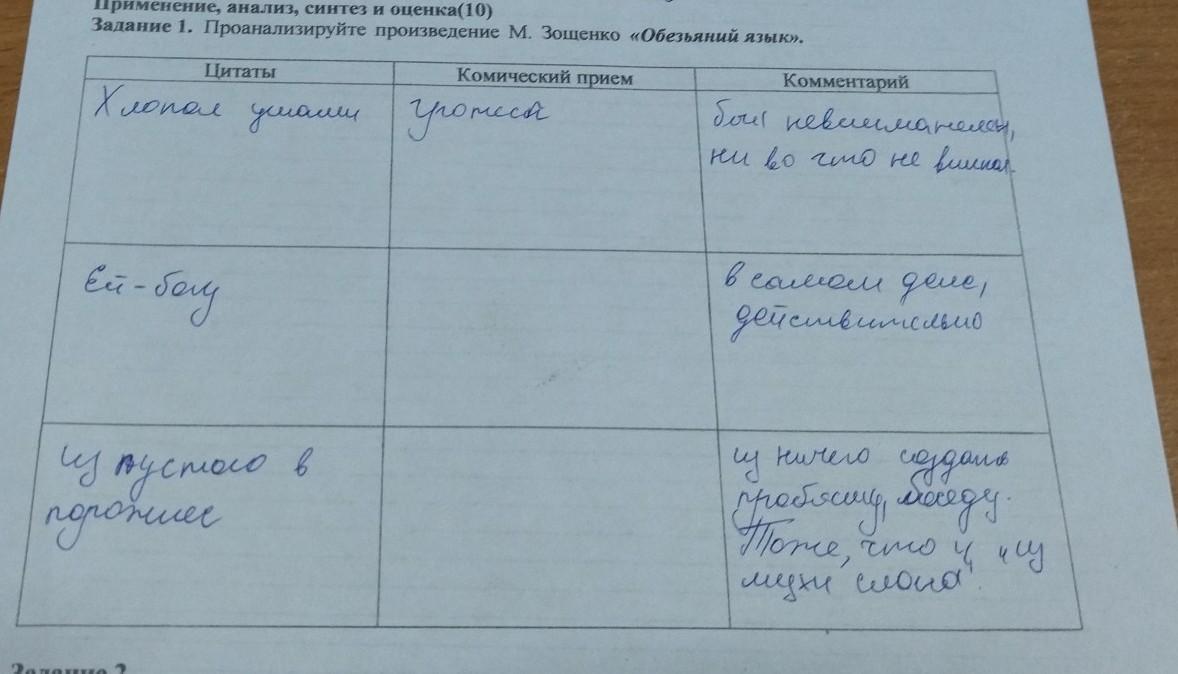 Применение, анализ, синтез и оценка(10)
Задание 1. Проанализируйте произведение М. Зощенко «Обезьяний язык».
Цитаты
Комический прием
Комментарий
Хлопал ушами
гротеск
был невнимателен,
ни во что не вникал.
Ей-богу
в самом деле,
действительно
из пустого в
порожнее
из ничего создать
проблему, беседу.
Тоже, что и "из
мухи слона".
Задание 2